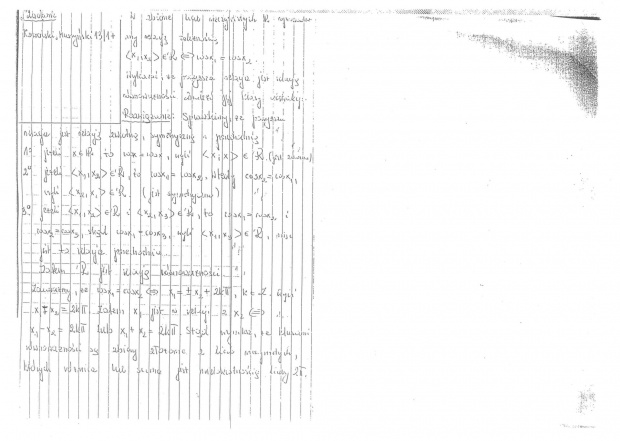 Zadanie W zbiorze liczb rzeczywistych R
my relację
<x₁,x₂> ∈ R ⇔ cosx₁ = cosx₂.
Wykazać, że powyższa relacja jest relacją
równoważności
Rozwiązanie: Sprawdzimy, że
relacja jest relacją zwrotną, symetryczną i przechodnią
1° jeżeli x∈R to cosx = cosx, czyli <x,x> ∈ R. (jest zwrotna)
2° jeżeli <x₁,x₂> ∈ R, to cosx₁ = cosx₂, wtedy cosx₂ = cosx₁,
czyli <x₂,x₁> ∈ R. (jest symetryczna)
3° jeżeli <x₁,x₂> ∈ R i <x₂,x₃> ∈ R, to cosx₁ = cosx₂ i
cosx₂ = cosx₃, stąd cosx₁ = cosx₃, czyli <x₁,x₃> ∈ R, więc
jest to relacja przechodnia.
Zatem R jest relacją równoważności
Zauważmy, że cosx₁ = cosx₂ ⇔ x₁ = ± x₂ + 2kπ, k ∈ Z, czyli
x₁ ∓ x₂ = 2kπ. Zatem x₁ jest w relacji z x₂ ⇔
x₁ - x₂ = 2kπ lub x₁ + x₂ = 2kπ. Stąd wynika, że klasami
równoważności są zbiory złożone z liczb rzeczywistych,
których różnica lub suma jest wielokrotnością liczby 2π.